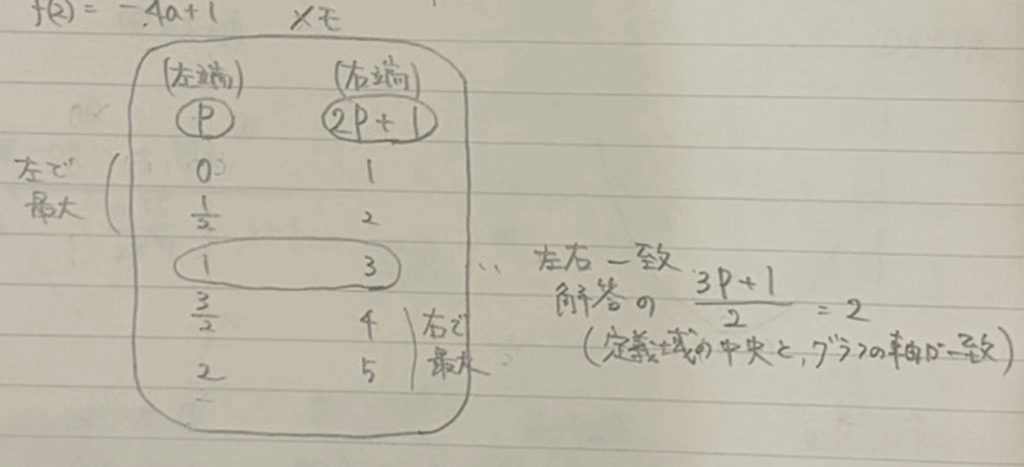 f(2) = -4a+1
メモ
(左端) (右端)
P 2P+1
0 1
左で
最大
1/2 2
1 3 ∵ 左右一致
解答の (3P+1)/2 = 2
3/2 4 右で
(定義域の中央と,グラフの軸が一致)
2 5 最大